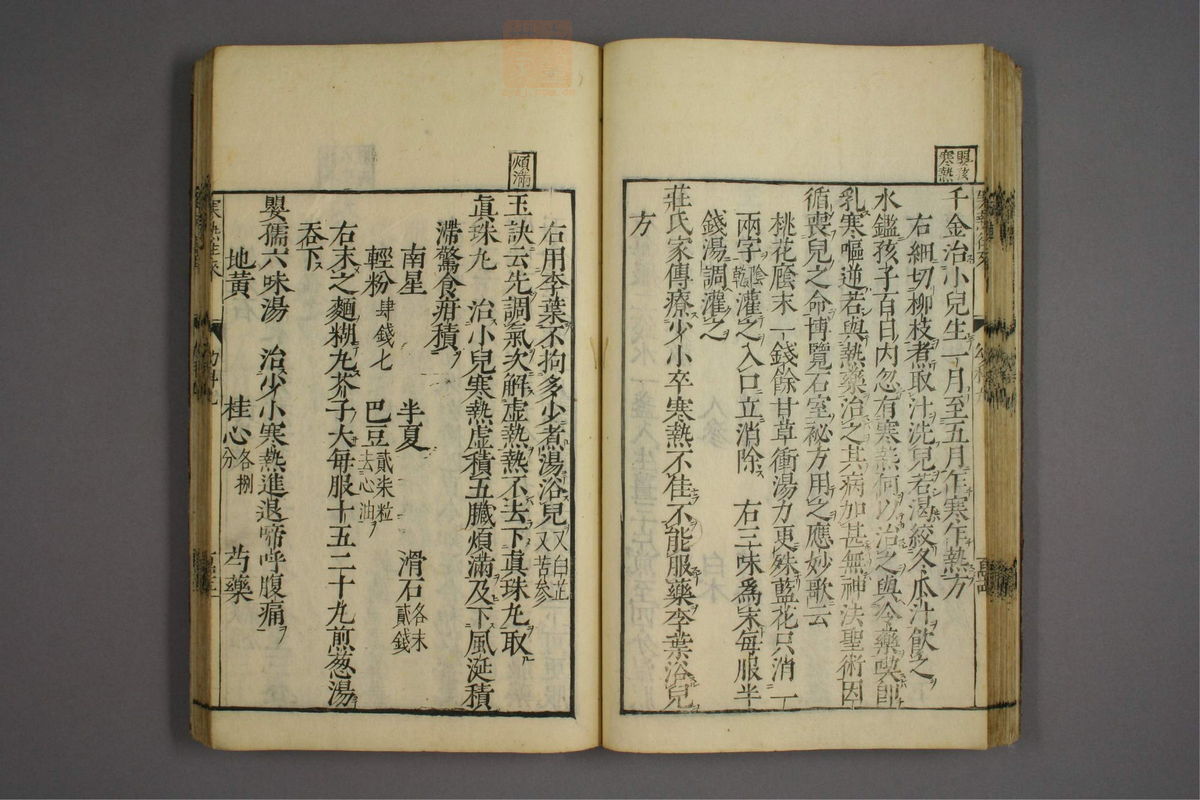 嬰孩
寒熱
千金治小兒生一月至五月乍寒乍熱方
右細切柳枝煮取汁洗兒若渴絞冬瓜汁飲之
水鑑孩子百日內忽有寒熱何以治之與冷藥喫即
乳寒嘔逆若與熱藥治之其病加甚無神法聖術因
循喪兒之命博覽石室祕方用之應妙歌云
桃花蔭末一錢餘甘草衝湯力更殊藍花只消一
兩字陰乾灌之入口立消除 右三味為末每服半
錢湯調灌之
莊氏家傳療少小卒寒熱不佳不能服藥李葉浴兒
方
右用李葉不拘多少煮湯浴兒又白芷又苦參
煩滿
玉訣云先調氣次解虛熱熱不去下眞珠丸取
眞珠丸 治小兒寒熱虛積五臟煩滿及下風涎積
滯驚食疳積
南星 半夏 滑石各末貳錢
輕粉肆錢匕 巴豆貳柒粒去心油
右末之麵糊丸芥子大每服十五二十丸煎葱湯
吞下
嬰孺六味湯 治少小寒熱進退啼呼腹痛
地黃 桂心各捌分 芍藥